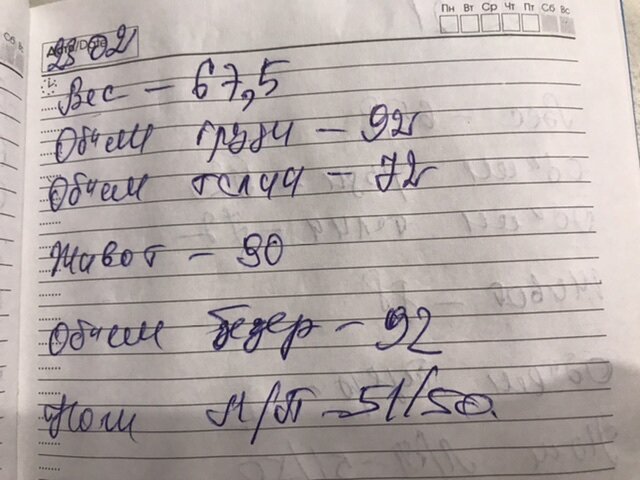 Пн Вт Ср Чт Пт Сб Вс
Сб Вс
Дата/Date
23 02
Вес - 67,5
Обьем груди - 92
Обьем талии - 72
Живот - 90
Обьем бедер - 92
Ноги Л/П - 51/50.